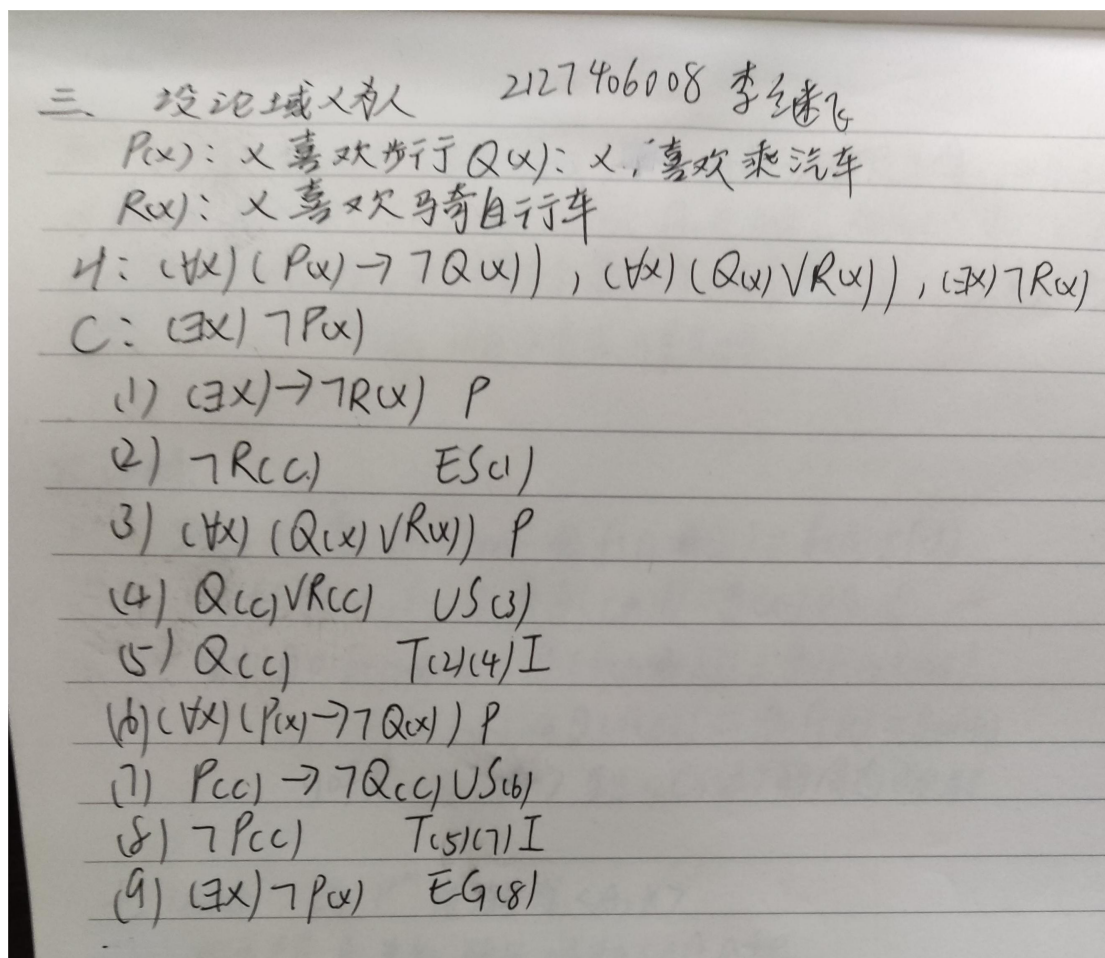 三、 设论域x为人 2127406008 李继飞
P(x): x喜欢步行 Q(x): x, 喜欢乘汽车
R(x): x喜欢骑自行车
H: (∀x)(P(x)→¬Q(x)), (∀x)(Q(x)∨R(x)), (∃x)¬R(x)
C: (∃x)¬P(x)
(1) (∃x)→¬R(x) P
(2) ¬R(c) ES(1)
(3) (∀x)(Q(x)∨R(x)) P
(4) Q(c)∨R(c) US(3)
(5) Q(c) T(2)(4)I
(6) (∀x)(P(x)→¬Q(x)) P
(7) P(c)→¬Q(c) US(6)
(8) ¬P(c) T(5)(7)I
(9) (∃x)¬P(x) EG(8)